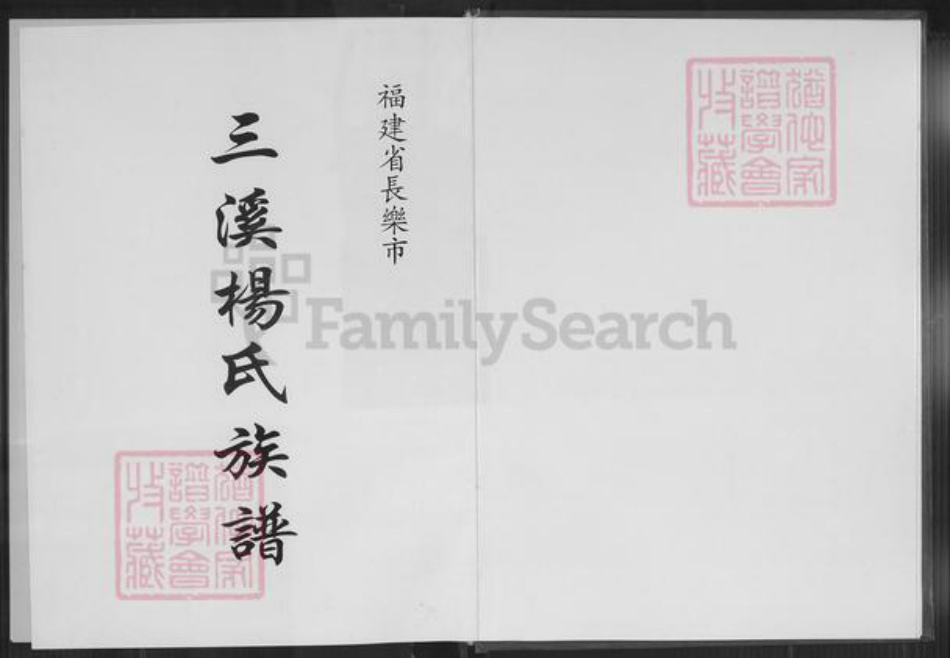 福建省長樂市
三溪楊氏族譜
猶他家
譜學會
收藏
FamilySearch
猶他家
譜學會
收藏